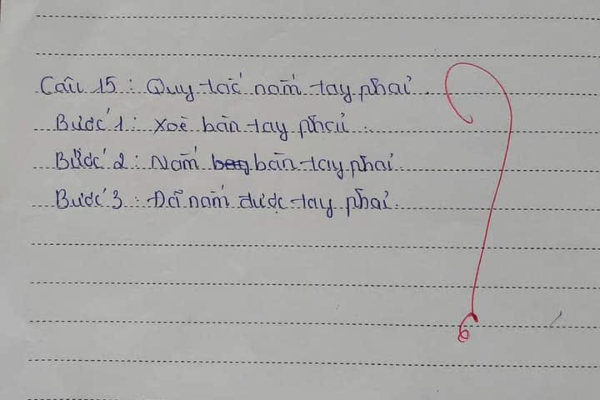 Câu 15: Quy tắc nắm tay phải.
Bước 1: Xoè bàn tay phải.
Bước 2: Nắm bàn tay phải.
Bước 3: Đã nắm được tay phải.